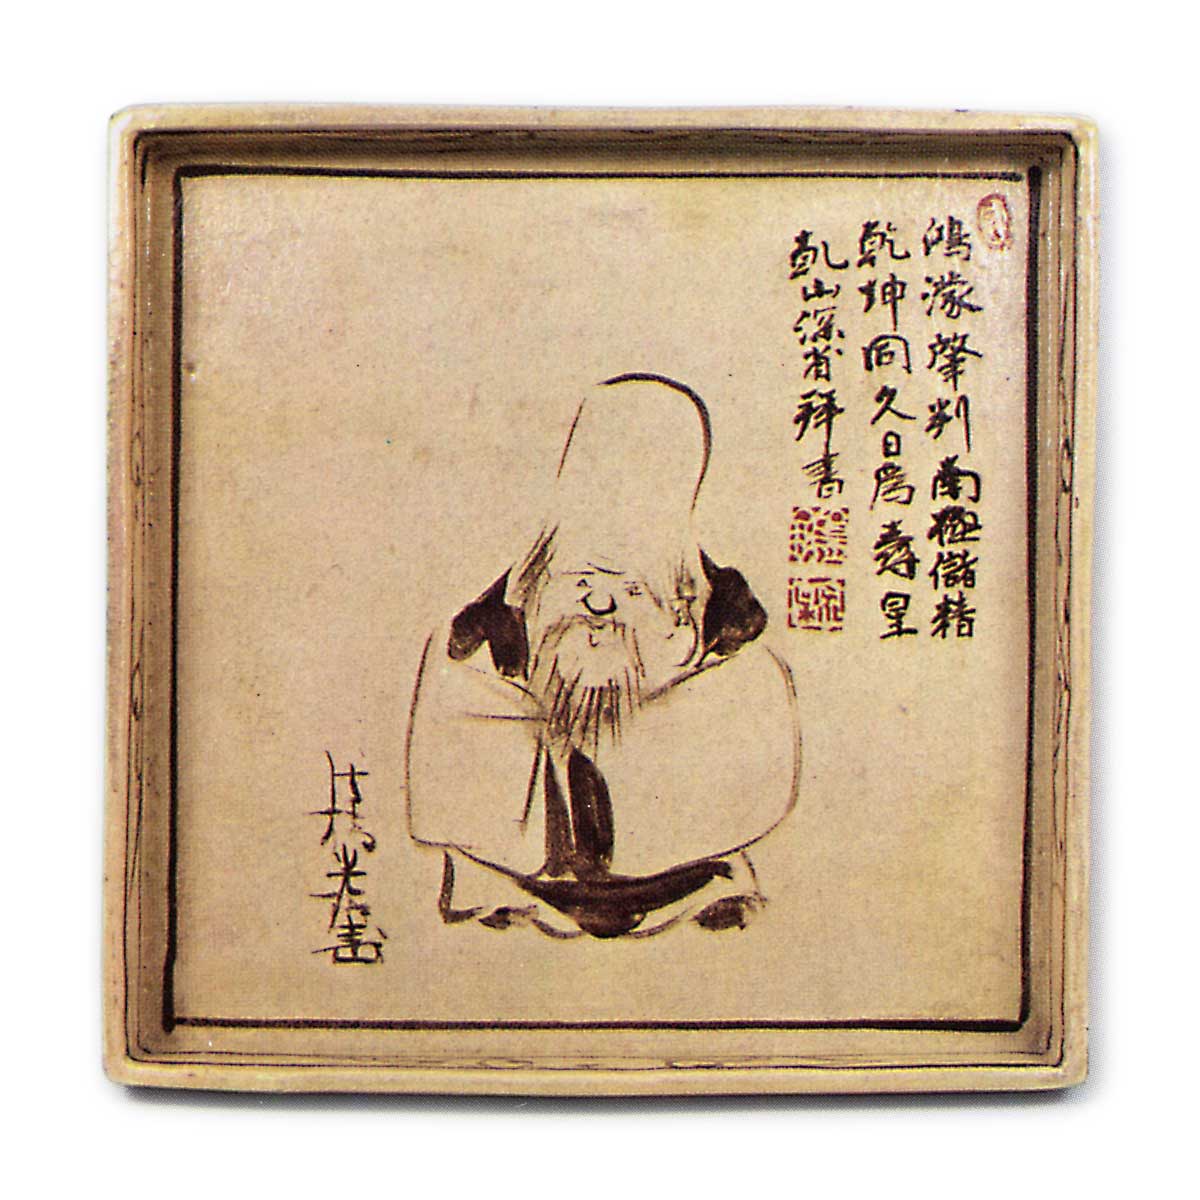 鴻濛肇判南極儲精
乾坤同久日爲壽星
乾山深省拜書
法橋光琳畫